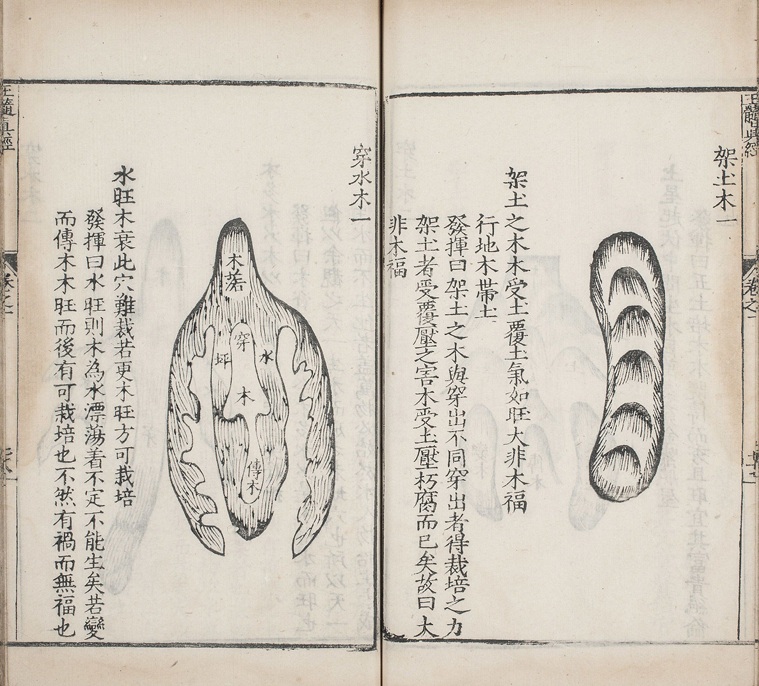 玉髓真經
卷之一
架土木一
架土之木木受土覆土氣如旺大非木福
行地木帶土
發揮曰架土之木與穿出不同穿出者得栽培之力
架土者受覆壓之害木受土壓朽腐而已矣故曰大
非木福
穿水木一
木
水
穿木
坪
傳木
水旺木衰此穴難裁若更木旺方可栽培
發揮曰水旺則木為水漂蕩着不定不能生矣若變
而傳木木旺而後有可栽培也不然有禍而無福也
玉髓真經
卷之一